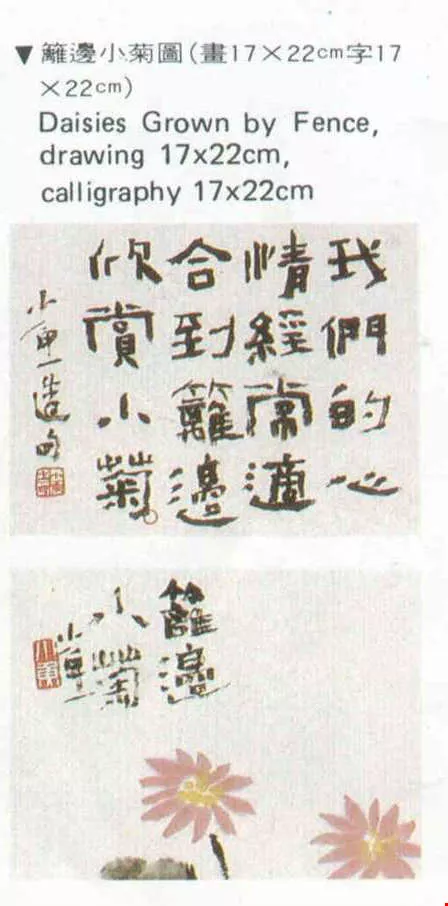 ▼籬邊小菊圖(畫17×22cm字17
×22cm)
Daisies Grown by Fence,
drawing 17x22cm,
calligraphy 17x22cm
我們的心
情經常適
合到籬邊
欣賞小菊。
小魚造句
籬邊
小菊
小魚